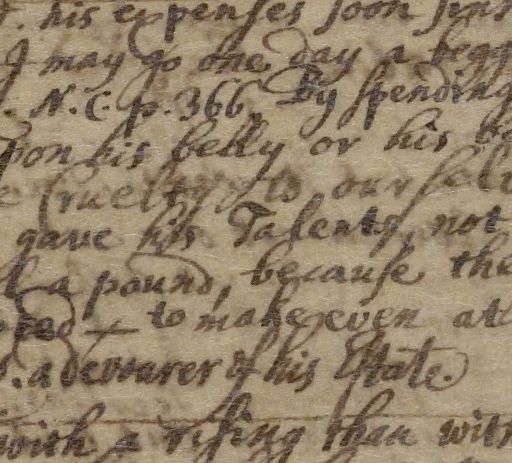 his expenses soon
I may go one day a begg
N.C. p. 366. By spending
upon his belly or his b
Cruelty to our selv
gave his Talents, not
a pound, because the
to make even at
a devourer of his Estate.
with a rising than with